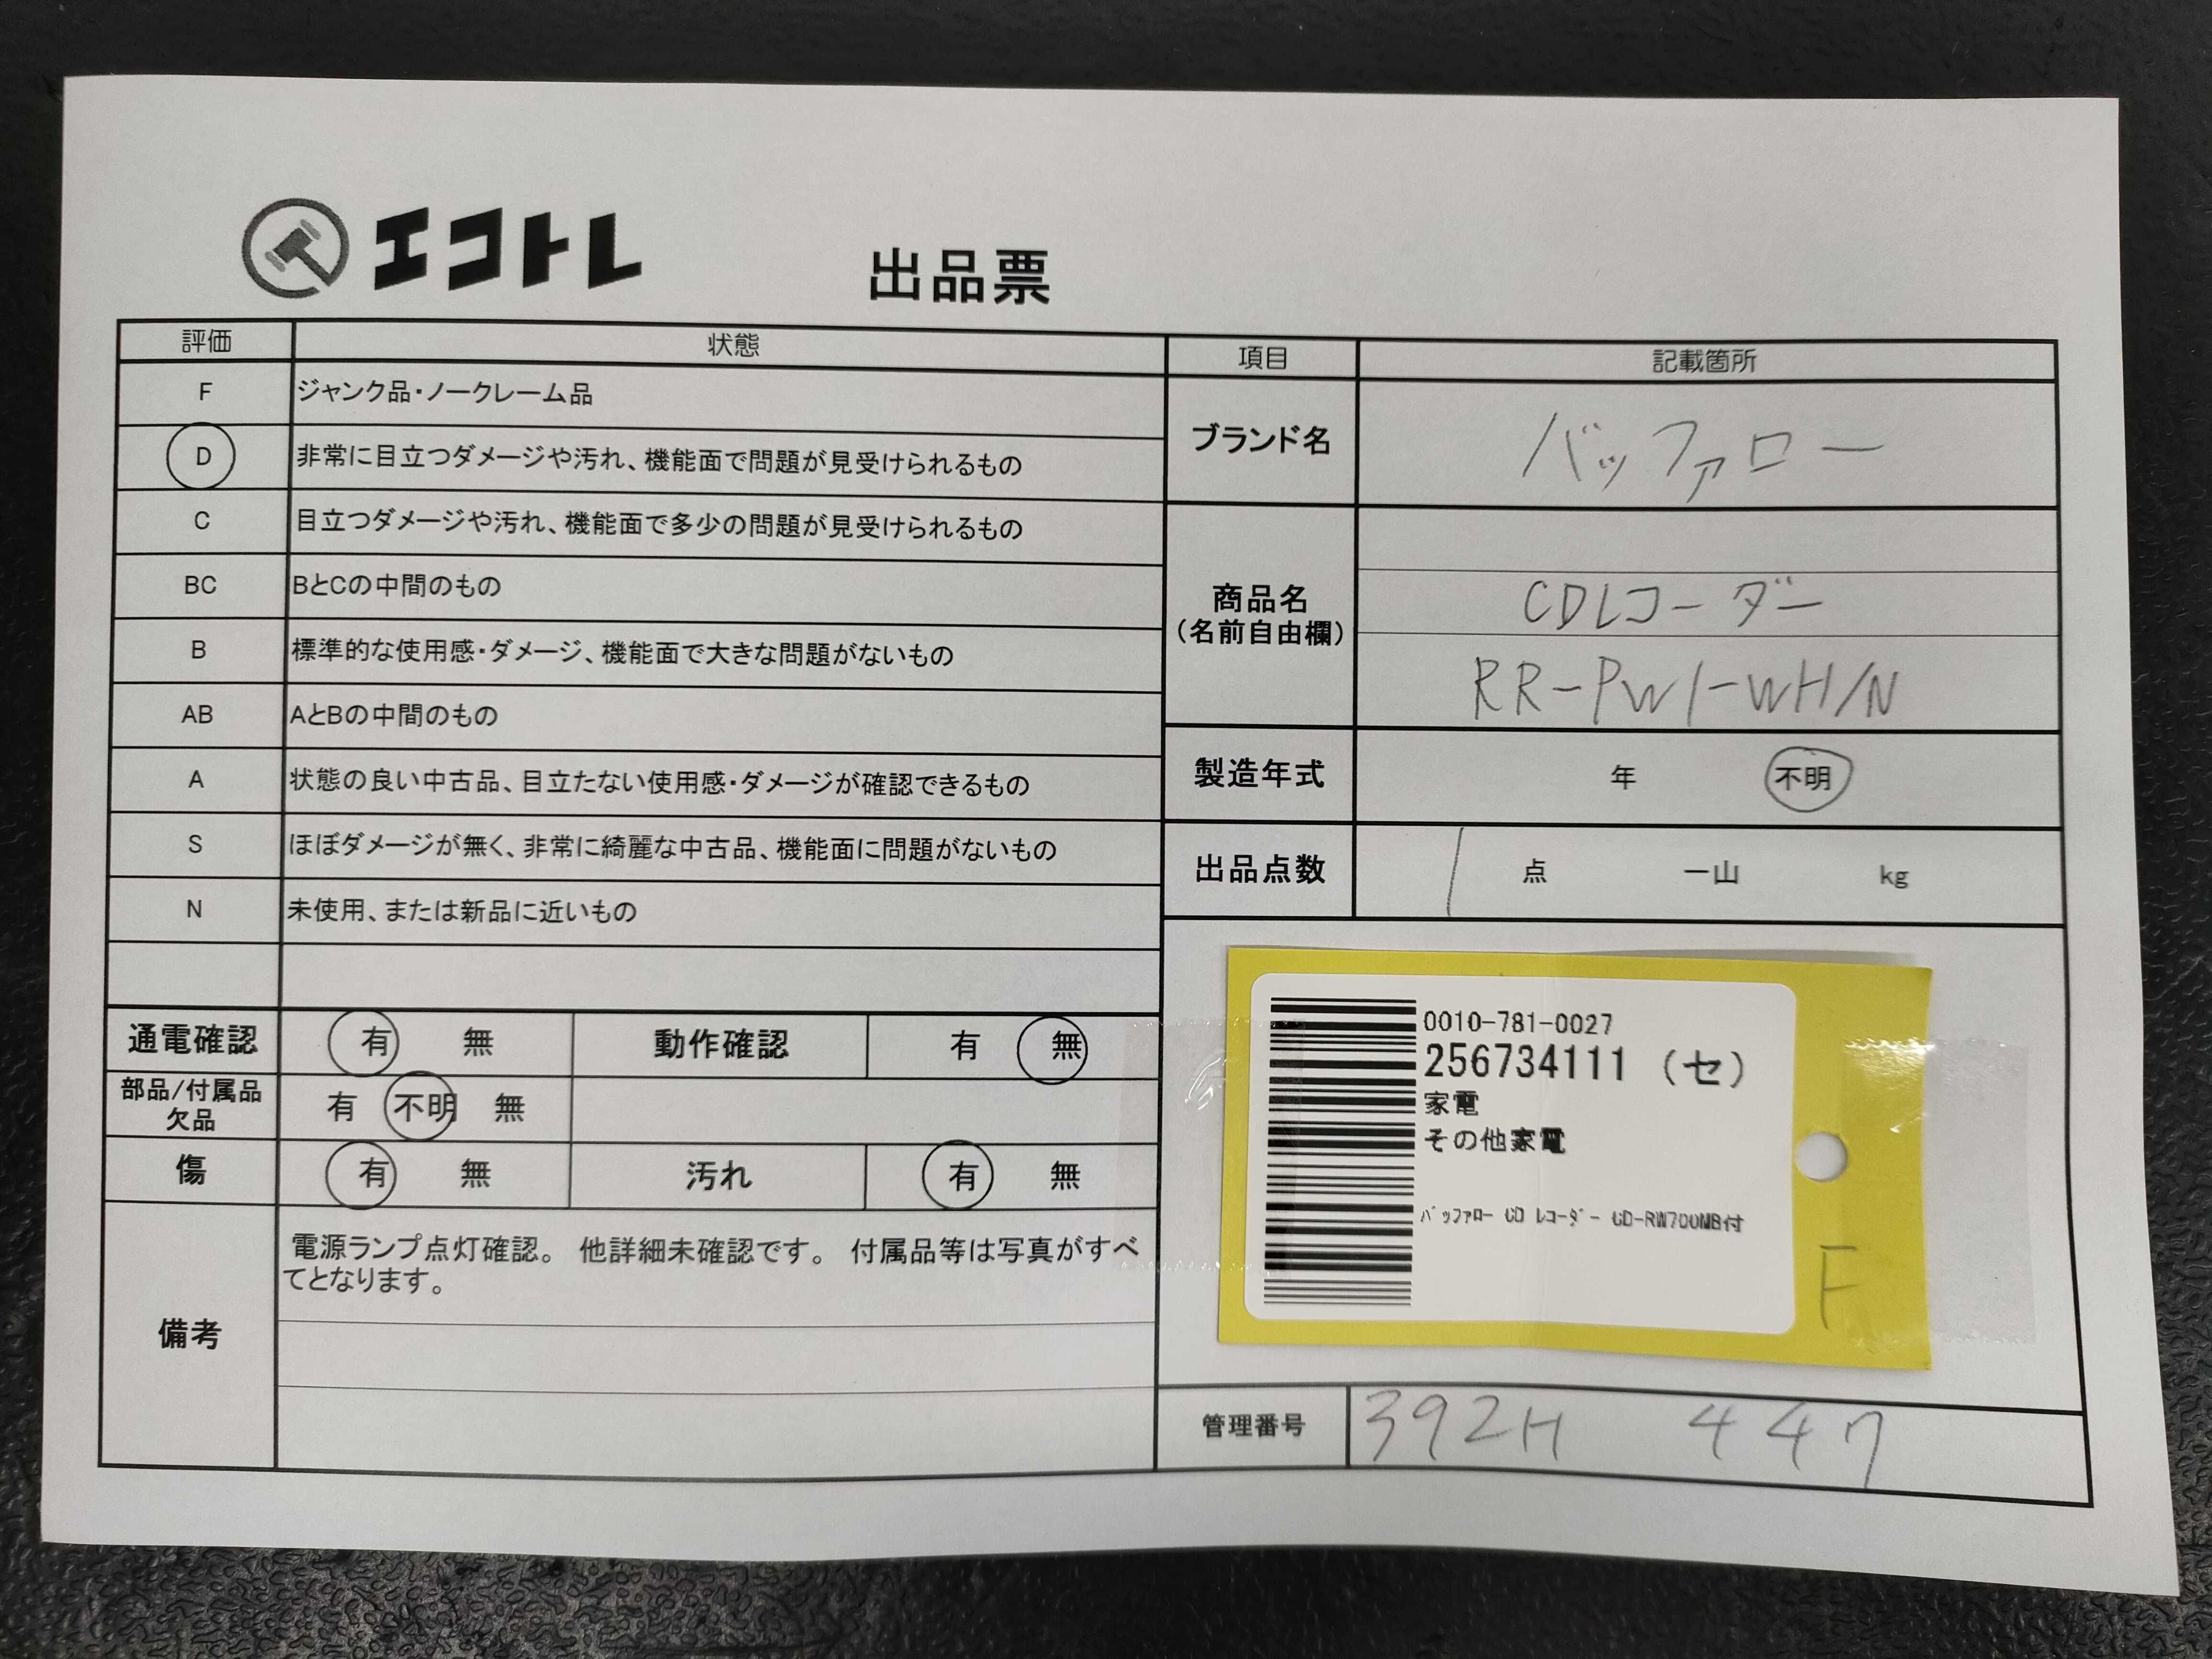 エコトレ
出品票
評価 状態
F ジャンク品・ノークレーム品
D 非常に目立つダメージや汚れ、機能面で問題が見受けられるもの
C 目立つダメージや汚れ、機能面で多少の問題が見受けられるもの
BC BとCの中間のもの
B 標準的な使用感・ダメージ、機能面で大きな問題がないもの
AB AとBの中間のもの
A 状態の良い中古品、目立たない使用感・ダメージが確認できるもの
S ほぼダメージが無く、非常に綺麗な中古品、機能面に問題がないもの
N 未使用、または新品に近いもの
通電確認 有 無 動作確認 有 無
部品/付属品
欠品 有 不明 無
傷 有 無 汚れ 有 無
備考
電源ランプ点灯確認。 他詳細未確認です。 付属品等は写真がすべ
てとなります。
項目 記載箇所
ブランド名 バッファロー
商品名
(名前自由欄)
CDレコーダー
RR-PW1-WH/N
製造年式 年 不明
出品点数 1 点 一山 kg
0010-781-0027
256734111 (セ)
家電
その他家電
ﾊﾞｯﾌｧﾛｰ CD ﾚｺｰﾀﾞｰ CD-RW700MB付
F
管理番号 392H 447